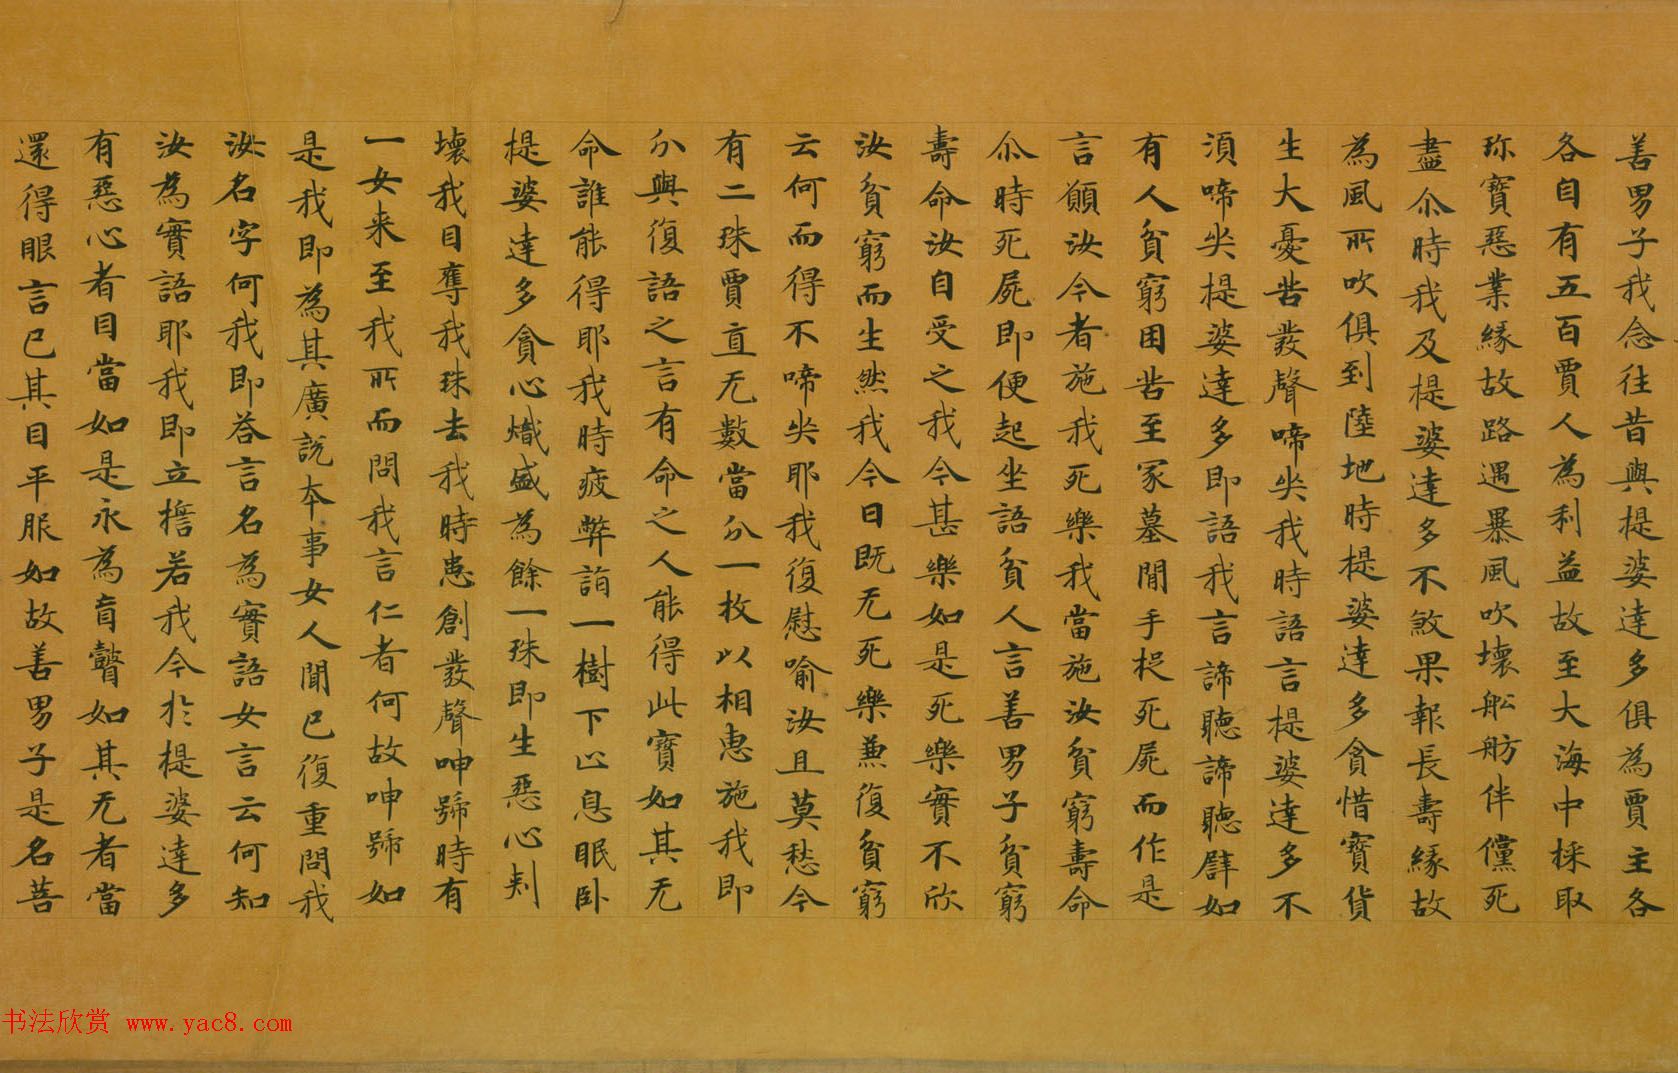 善男子我念往昔與提婆達多俱為賈主各
各自有五百賈人為利益故至大海中採取
珎寶惡業緣故路遇暴風吹壞舩舫伴儻死
盡尒時我及提婆達多不煞果報長壽緣故
為風所吹俱到陸地時提婆達多貪惜寶貨
生大憂苦發聲啼哭我時語言提婆達多不
須啼哭提婆達多即語我言諦聽諦聽譬如
有人貧窮困苦至冢墓間手捉死屍而作是
言願汝今者施我死樂我當施汝貧窮壽命
尒時死屍即便起坐語貧人言善男子貧窮
壽命汝自受之我今甚樂如是死樂實不欣
汝貧窮而生然我今日既无死樂兼復貧窮
云何而得不啼哭耶我復慰喻汝且莫愁今
有二珠賈直无數當分一枚以相惠施我即
分與復語之言有命之人能得此寶如其无
命誰能得耶我時疲弊詣一樹下止息眠卧
提婆達多貪心熾盛為餘一珠即生惡心刺
壞我目奪我珠去我時患創發聲呻號時有
一女来至我所而問我言仁者何故呻號如
是我即為其廣說本事女人聞已復重問我
汝名字何我即荅言名為實語女言云何知
汝為實語耶我即立擔若我今於提婆達多
有惡心者目當如是永為盲瞽如其无者當
還得眼言已其目平服如故善男子是名菩
书法欣赏 www.yac8.com